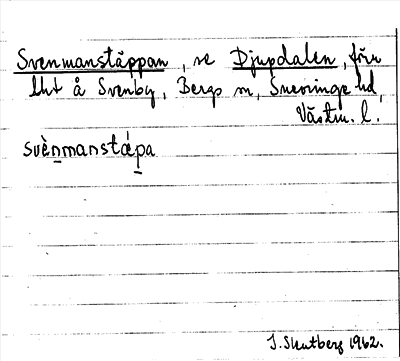 Svenmanstäppan, se Djupdalen, förr
lht å Svenby, Bergs sn, Snevringe hd,
Västm. l.
svènmanstä́pa
J. Skutberg 1962.